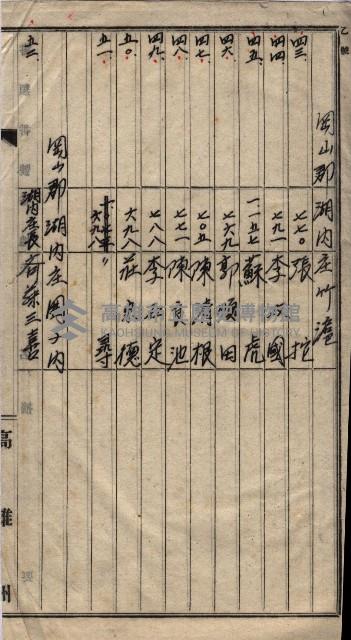 乙號
岡山郡湖内庄竹滬
四三、 七七〇 張 控
四四、 七九一 李 國
四五、 一一五七 蘇 虎
四六、 七六九 郭頭田
四七、 七〇五 陳 根
四八、 七七一 陳良池
四九、 七八八 李 定
五〇、 六九八 莊 德
五一、 六九八 〃 尋
岡山郡湖内庄圍子内
五二、 湖内庄長 齊藤三喜
高雄州
高雄市立歷史博物館
KAOHSIUNG MUSEUM OF HISTORY